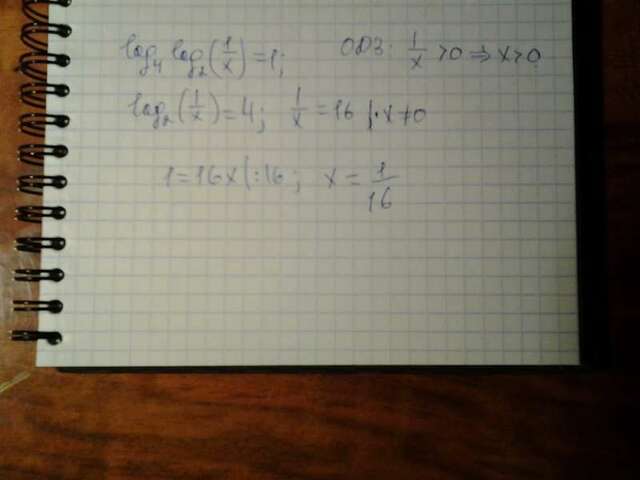 log₄ log₂(1/x) = 1; ОДЗ: 1/x >0 ⇒ x>0
log₂(1/x) = 4; 1/x = 16 |·x ≠0
1 = 16x |:16; x = 1/16